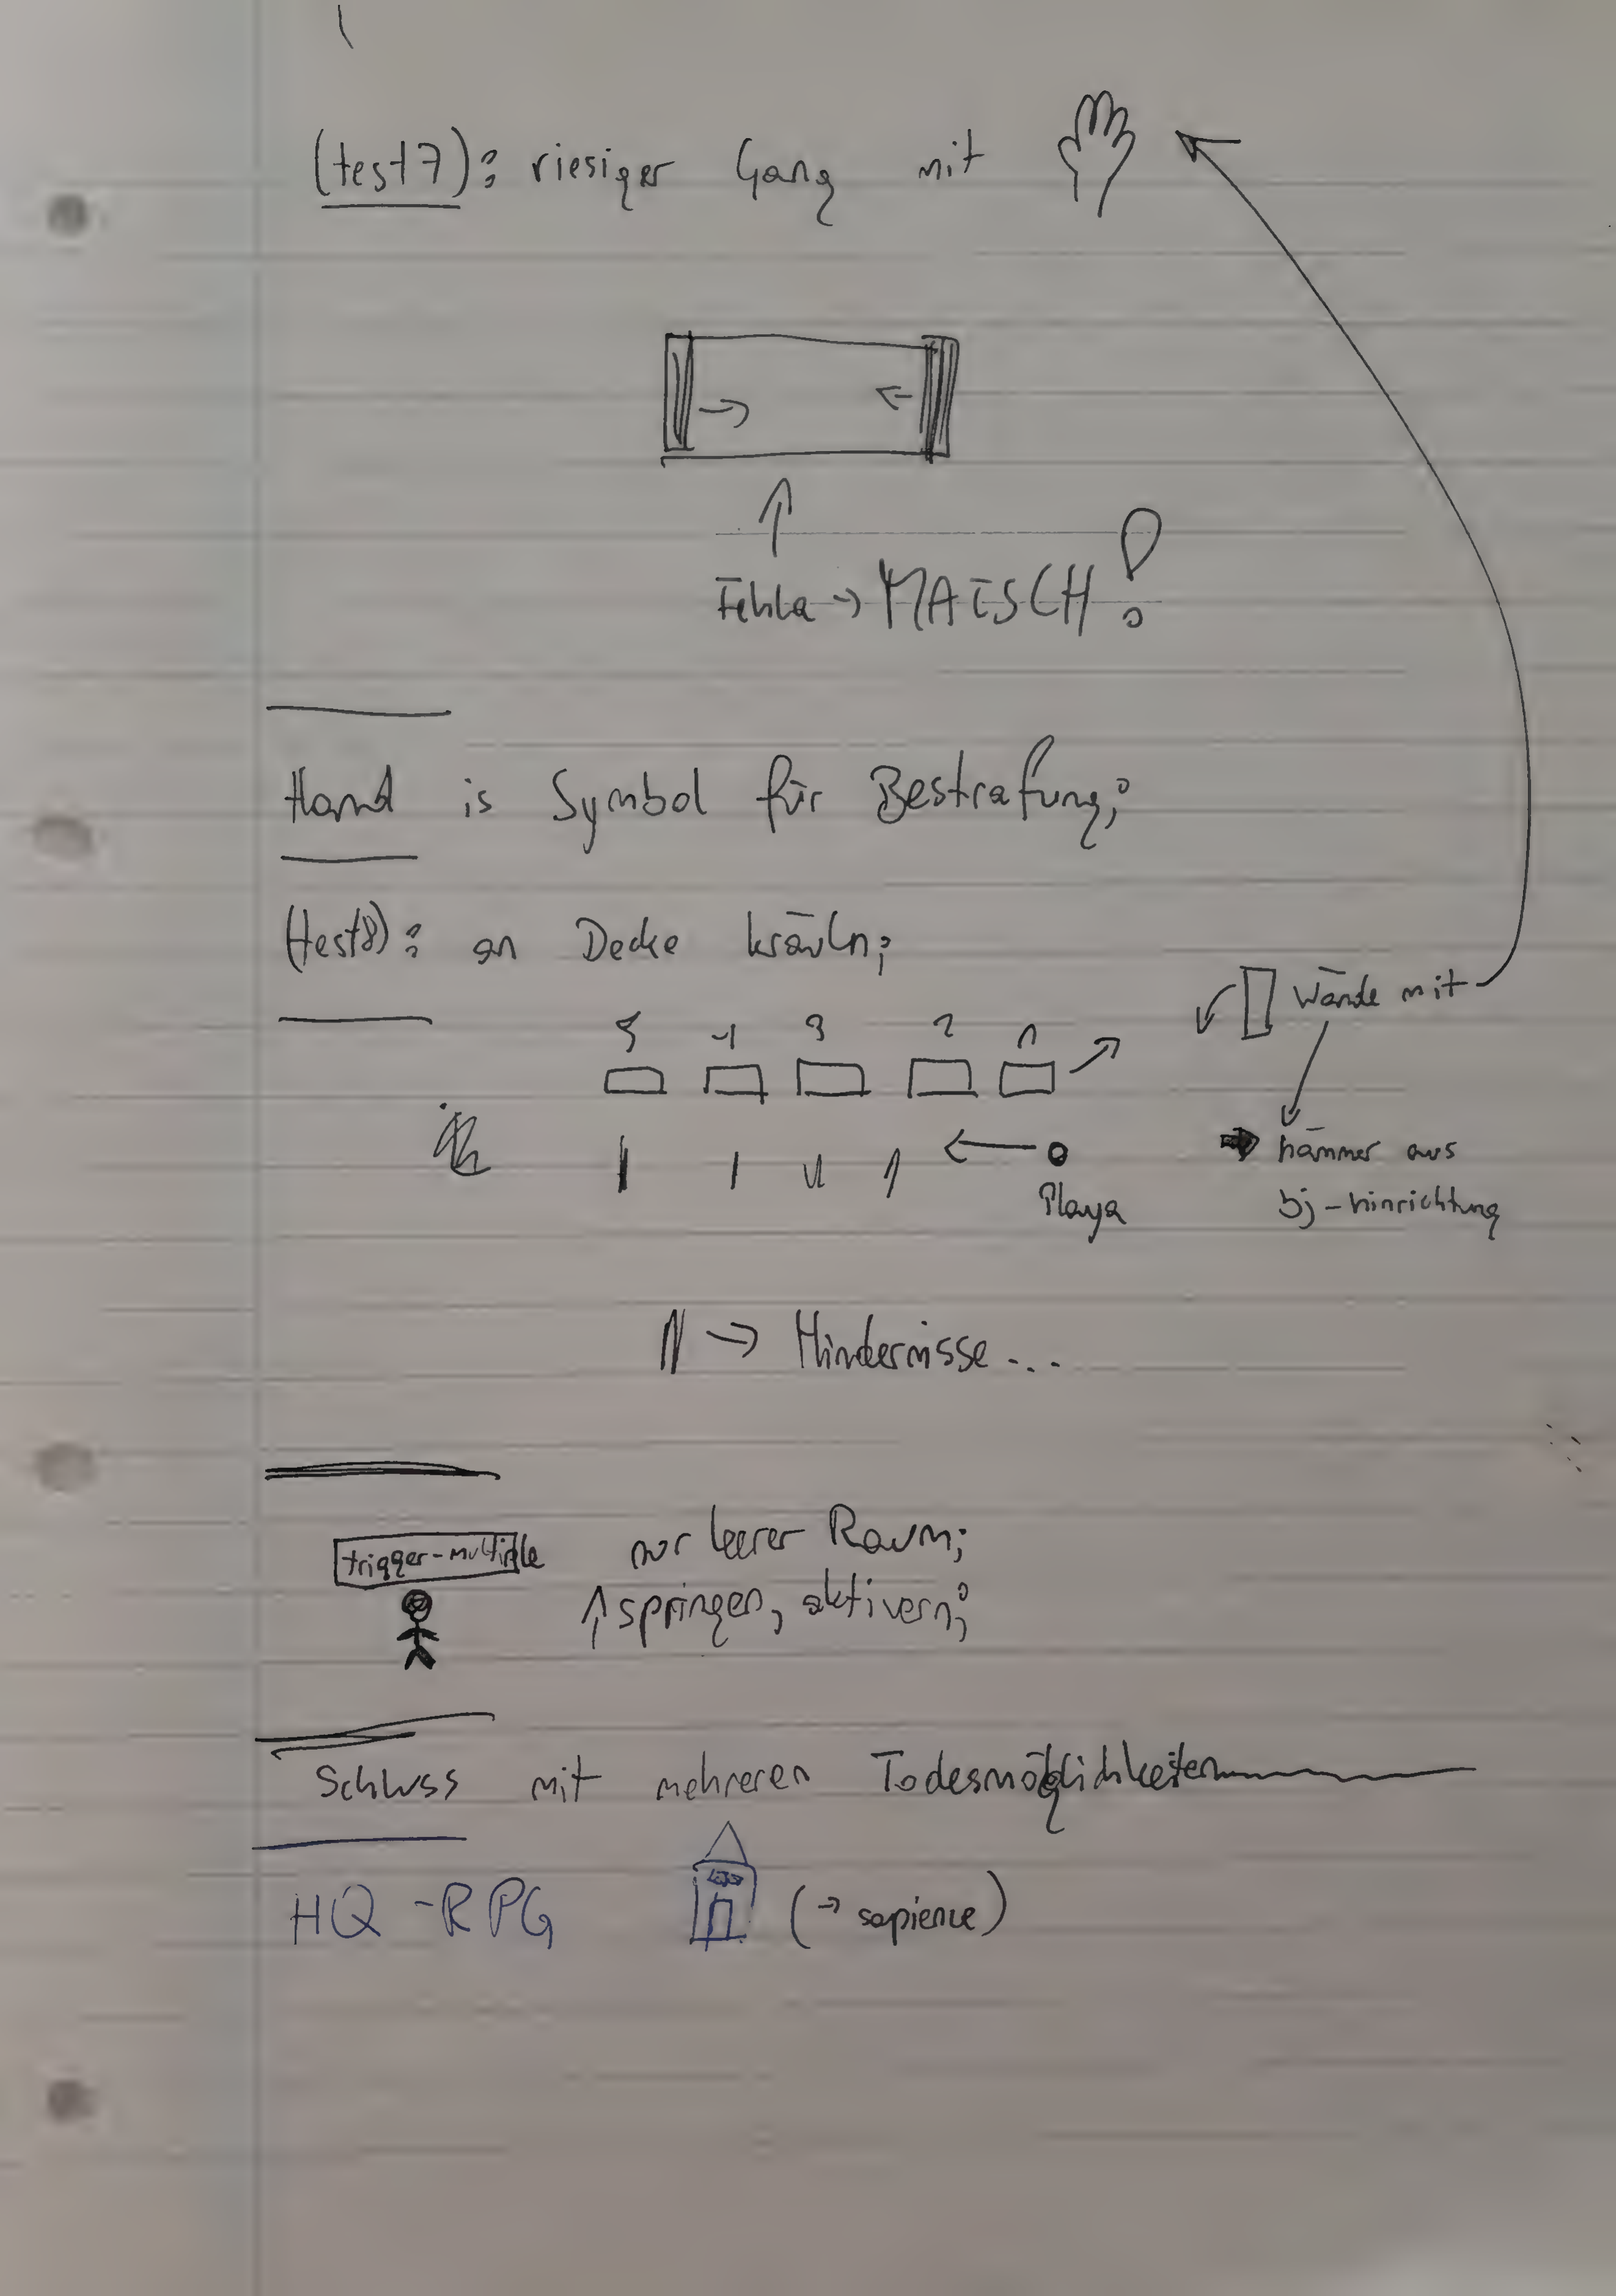 (test7): riesiger Gang mit
Fehla → MATSCH!
Hand is Symbol für Bestrafung;
(test8): an Decke kräuln;
5 4 3 2 1
Wände mit
Playa
hämmer aus
bj-hinrichtung
→ Hindernisse...
trigger-multiple
nur leerer Raum;
↑ springen, aktivern;
Schluss mit mehreren Todesmöglichkeiten
HQ-RPG (→ sapience)